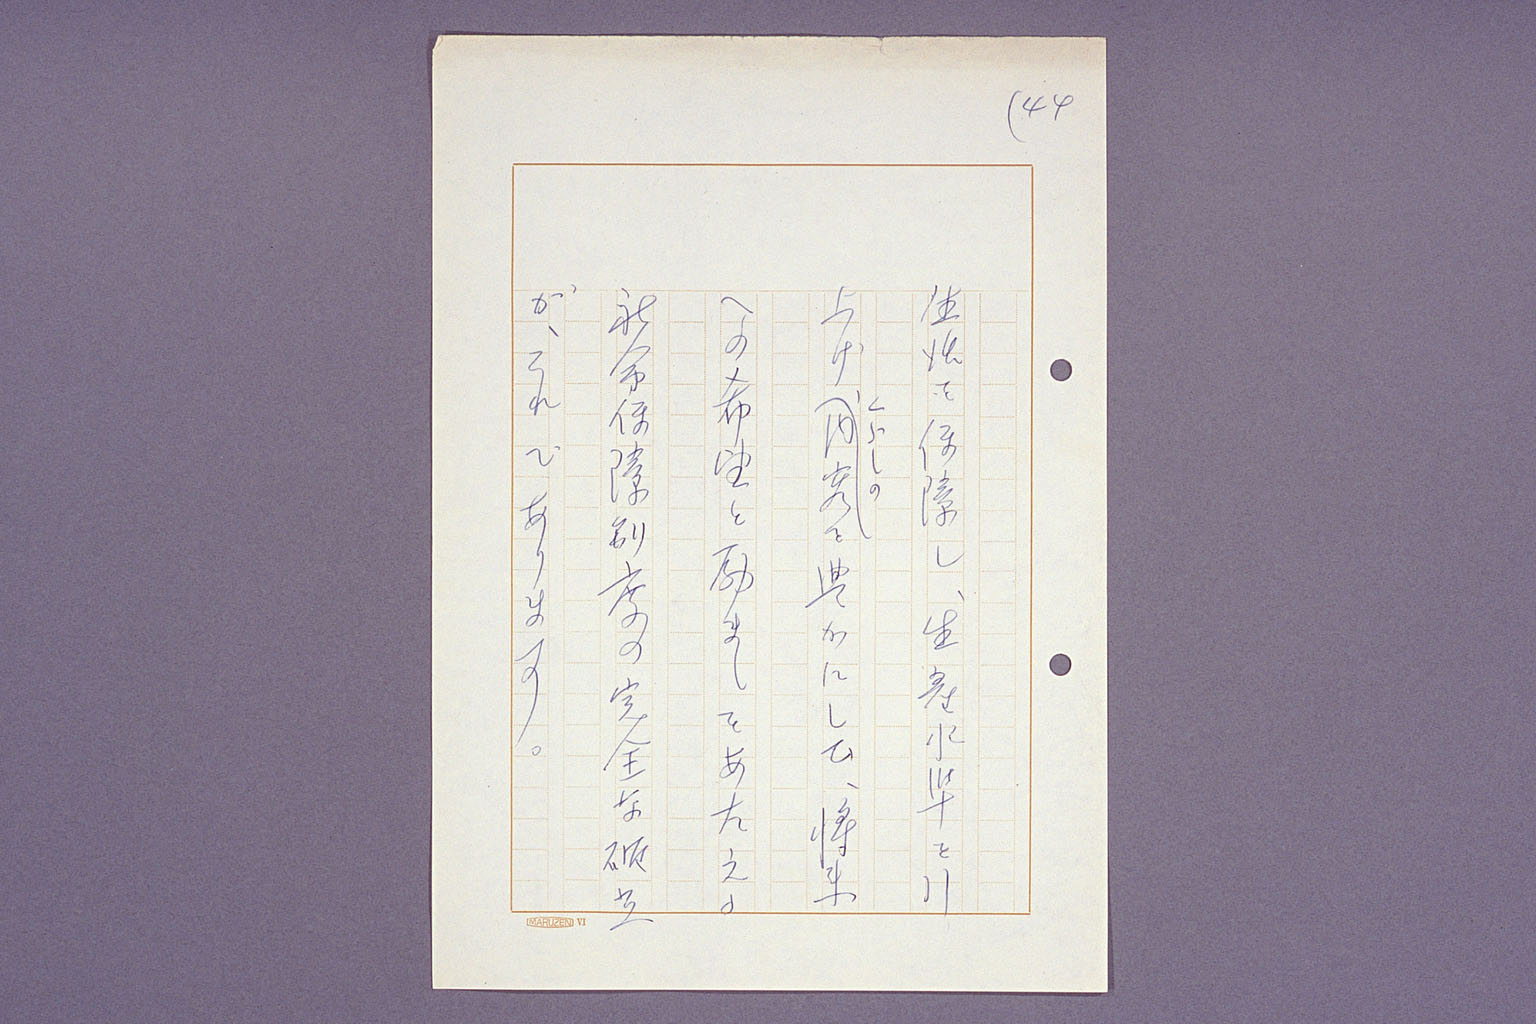 (44
生活を保障し、生産水準を引
くらしの
上げ、内容を豊かにして、将来
への希望と励ましをあたえる
社会保障制度の完全な確立
が、それであります。
MARUZEN VI